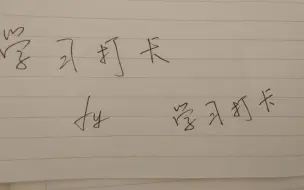 学习打卡
fy 学习打卡